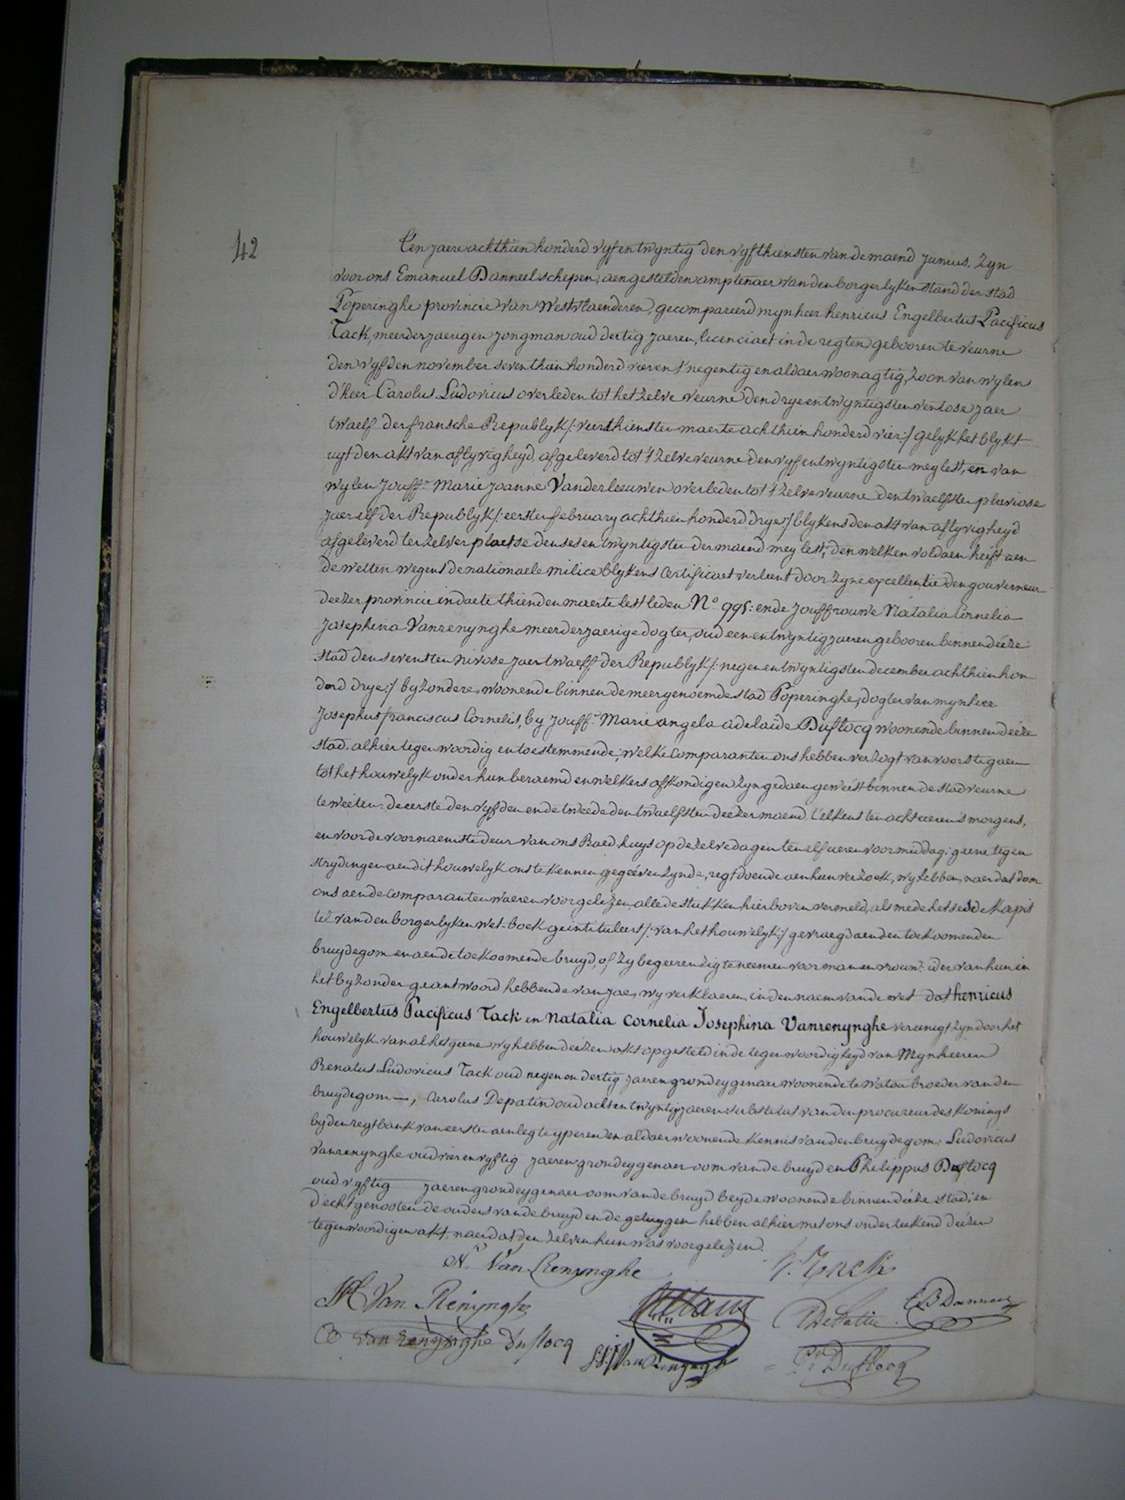 42
Ten jaere achthien honderd vyf en twyntig den vyfthiensten van de maend junius. Zyn
voor ons Emanuel Danneel schepen, aengestelden amptenaer van den borgerlyken stand der stad
Poperinghe provincie van Westvlaenderen, gecompareerd mynheer henricus Engelbertus Pacificus
Tack, meerderjaerigen jongman oud dertig jaeren, licenciaet in de regten gebooren te veurne
den vyfden november seventhien honderd vier en t'negentig en aldaer woonagtig, Zoon van wylen
d'heer Carolus Ludovicus overleden tot het zelve veurne den drye en twyntigsten ventose jaer
twaelf der fransche Republyk /: veerthienste maerte achthien honderd vier :/ gelyk het blykt
uyt den akt van aflyvigheyd afgeleverd tot 't zelve veurne den vyf en twyntigsten mey lest, en van
wylen Jouff.w Marie Joanne Vanderleeuwen overleden tot 't zelve veurne den twaelfsten pluviose
jaer elf der Republyk /: eersten february achthien honderd drye :/ blykens den akt van aflyvigheyd
afgeleverd ter zelver plaetse den sesen twyntigsten der maend mey lest, den welken voldaen heift aen
de wetten wegens de nationaele milice blykens Certificaet verleent door zyne excellentie den gouverneur
deezer provincie in daete thienden maerte lestleden N.o 995: ende Jouffrouwe Natalia Cornelia
Josephina Vanrenynghe meerderjaerige dogter, oud een en twyntig jaeren gebooren binnen deéze
stad den sevensten nivose jaer twaelf der Republyk /: negen en twyntigsten december achthien hon
derd drye :/ byzondere, woonende binnen de meergenoemde stad Poperinghe, dogter van mynheer
Josephus franciscus Cornelis, by Jouff.w Marie angela adelaïde Duflocq woonende binnen deéze
stad, alhier tegenwoordig en toestemmende; welke Comparanten ons hebben verzogt van voors te gaen
tot het houwelyk onder hun beraemd en welkers afkondigen zyn gedaen geweést binnen de stad veurne
te weiten: de eerste den vyfden ende tweede den twaelfsten deezer maend t'elkens ten acht ueren s'morgens,
en voor de voornaemste deur van ons Raedhuys op de zelve dagen ten elf ueren voormiddag: geene tegen
strydingen aen dit houwelyk ons te kennen gegeéven zynde, regtdoende aen hun verzoek, wy hebben, naer dat door
ons aen de comparanten waeren voorgelezen, alle de stukken hier boven vermeld, als mede het sesde Kapit
tel van den borgerlyken Wet-boek geintituleert /: van het houwelyk :/ gevraegd aen den toekoomenden
bruydegom en aen de toekoomende bruyd, of zy begeeren dig te neemen voor man en vrouw: ider van hun in
het byzonder geantwoord hebbende van jae, wy verklaeren, in den naem van de wet dat henricus
Engelbertus Pacificus Tack en Natalia Cornelia Josephina Vanrenynghe vereenigt zyn door het
houwelyk van al het geene wy hebben deézen akt opgesteld in de tegenwoordigheyd van Mynheeren
Renatus Ludovicus Tack oud negen en dertig jaeren grondeygenaer woonende te Watou broeder van den
bruydegom —, Carolus Depatin oud acht en twyntig jaeren substitut van den procureur des Konings
by den regtbank van eersten aenleg te yperen en aldaer woonende kennis van den bruydegom; Ludovicus
Vanrenynghe oud vier en vyftig jaeren grondeygenaer oom van de bruyd en Philippus Duflocq
oud vyftig jaeren grondeygenaer oom van de bruyd beyde woonende binnen deéze stad; en
d'echtgenooten de ouders van de bruyd en de getuygen hebben alhier met ons onderteekend deézen
tegenwoordigen akt, naer dat den zelven hun was voorgelezen.
N. Van Renynghe
Van Renynghe
Van Renynghe Duflocq
Van Renynghe
Duflocq